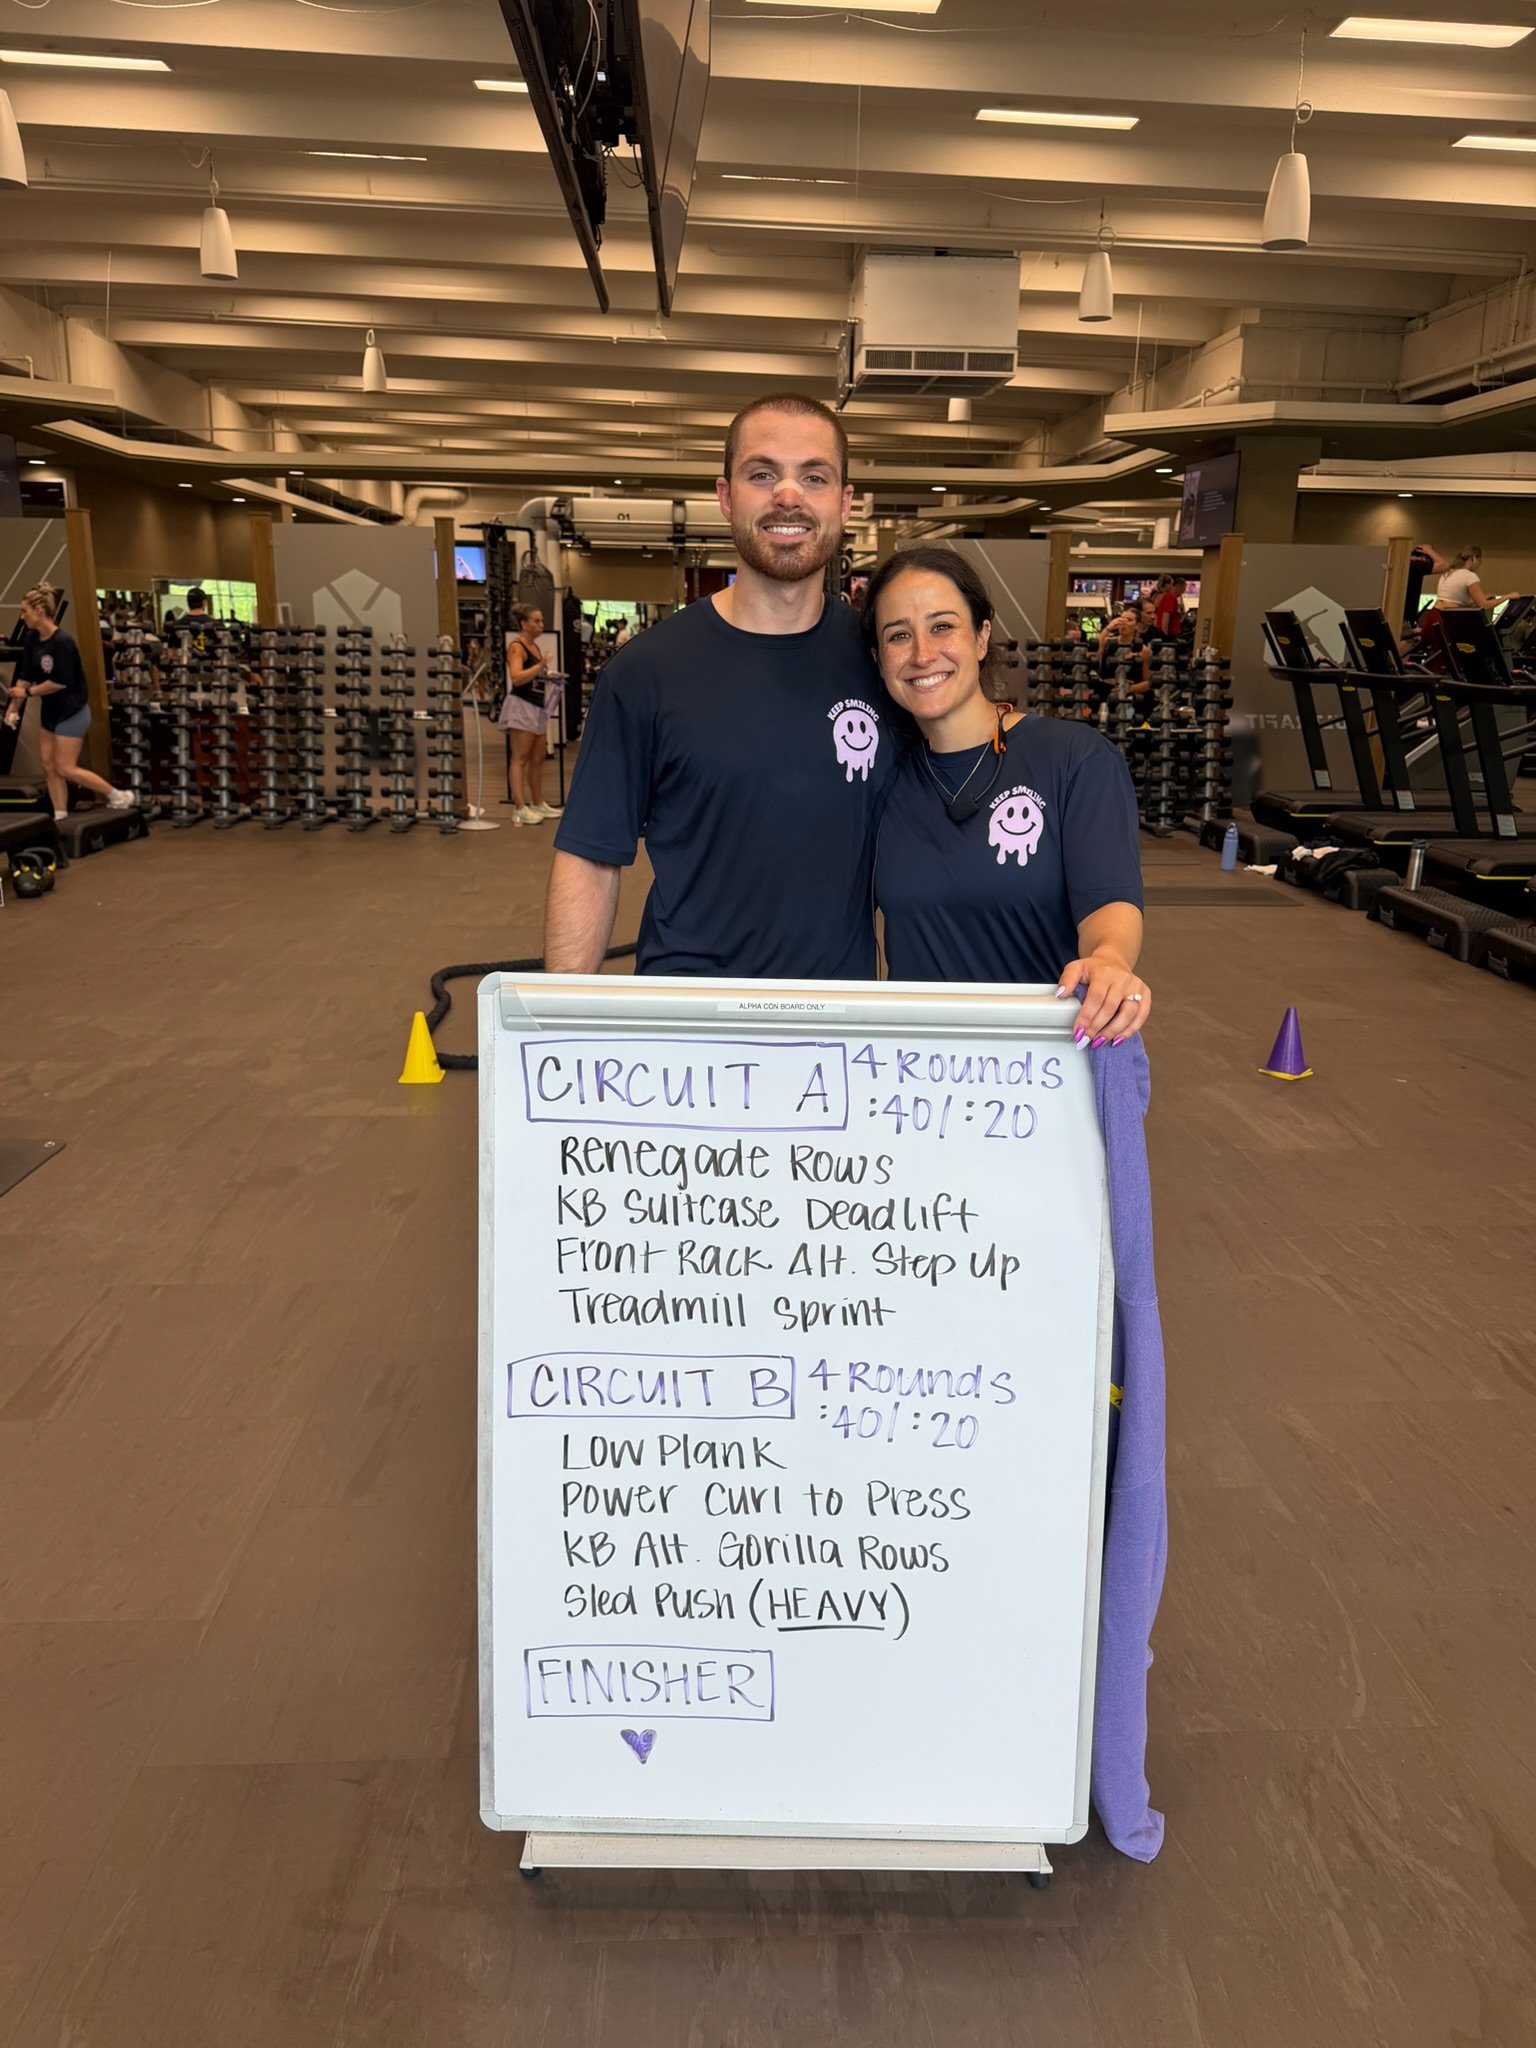 KEEP SMILING
KEEP SMILING
ALPHA CON BOARD ONLY
CIRCUIT A
4 Rounds
:40/:20
Renegade Rows
KB Suitcase Deadlift
Front Rack Alt. Step Up
Treadmill Sprint
CIRCUIT B
4 Rounds
:40/:20
Low Plank
Power Curl to Press
KB Alt. Gorilla Rows
Sled Push (HEAVY)
FINISHER